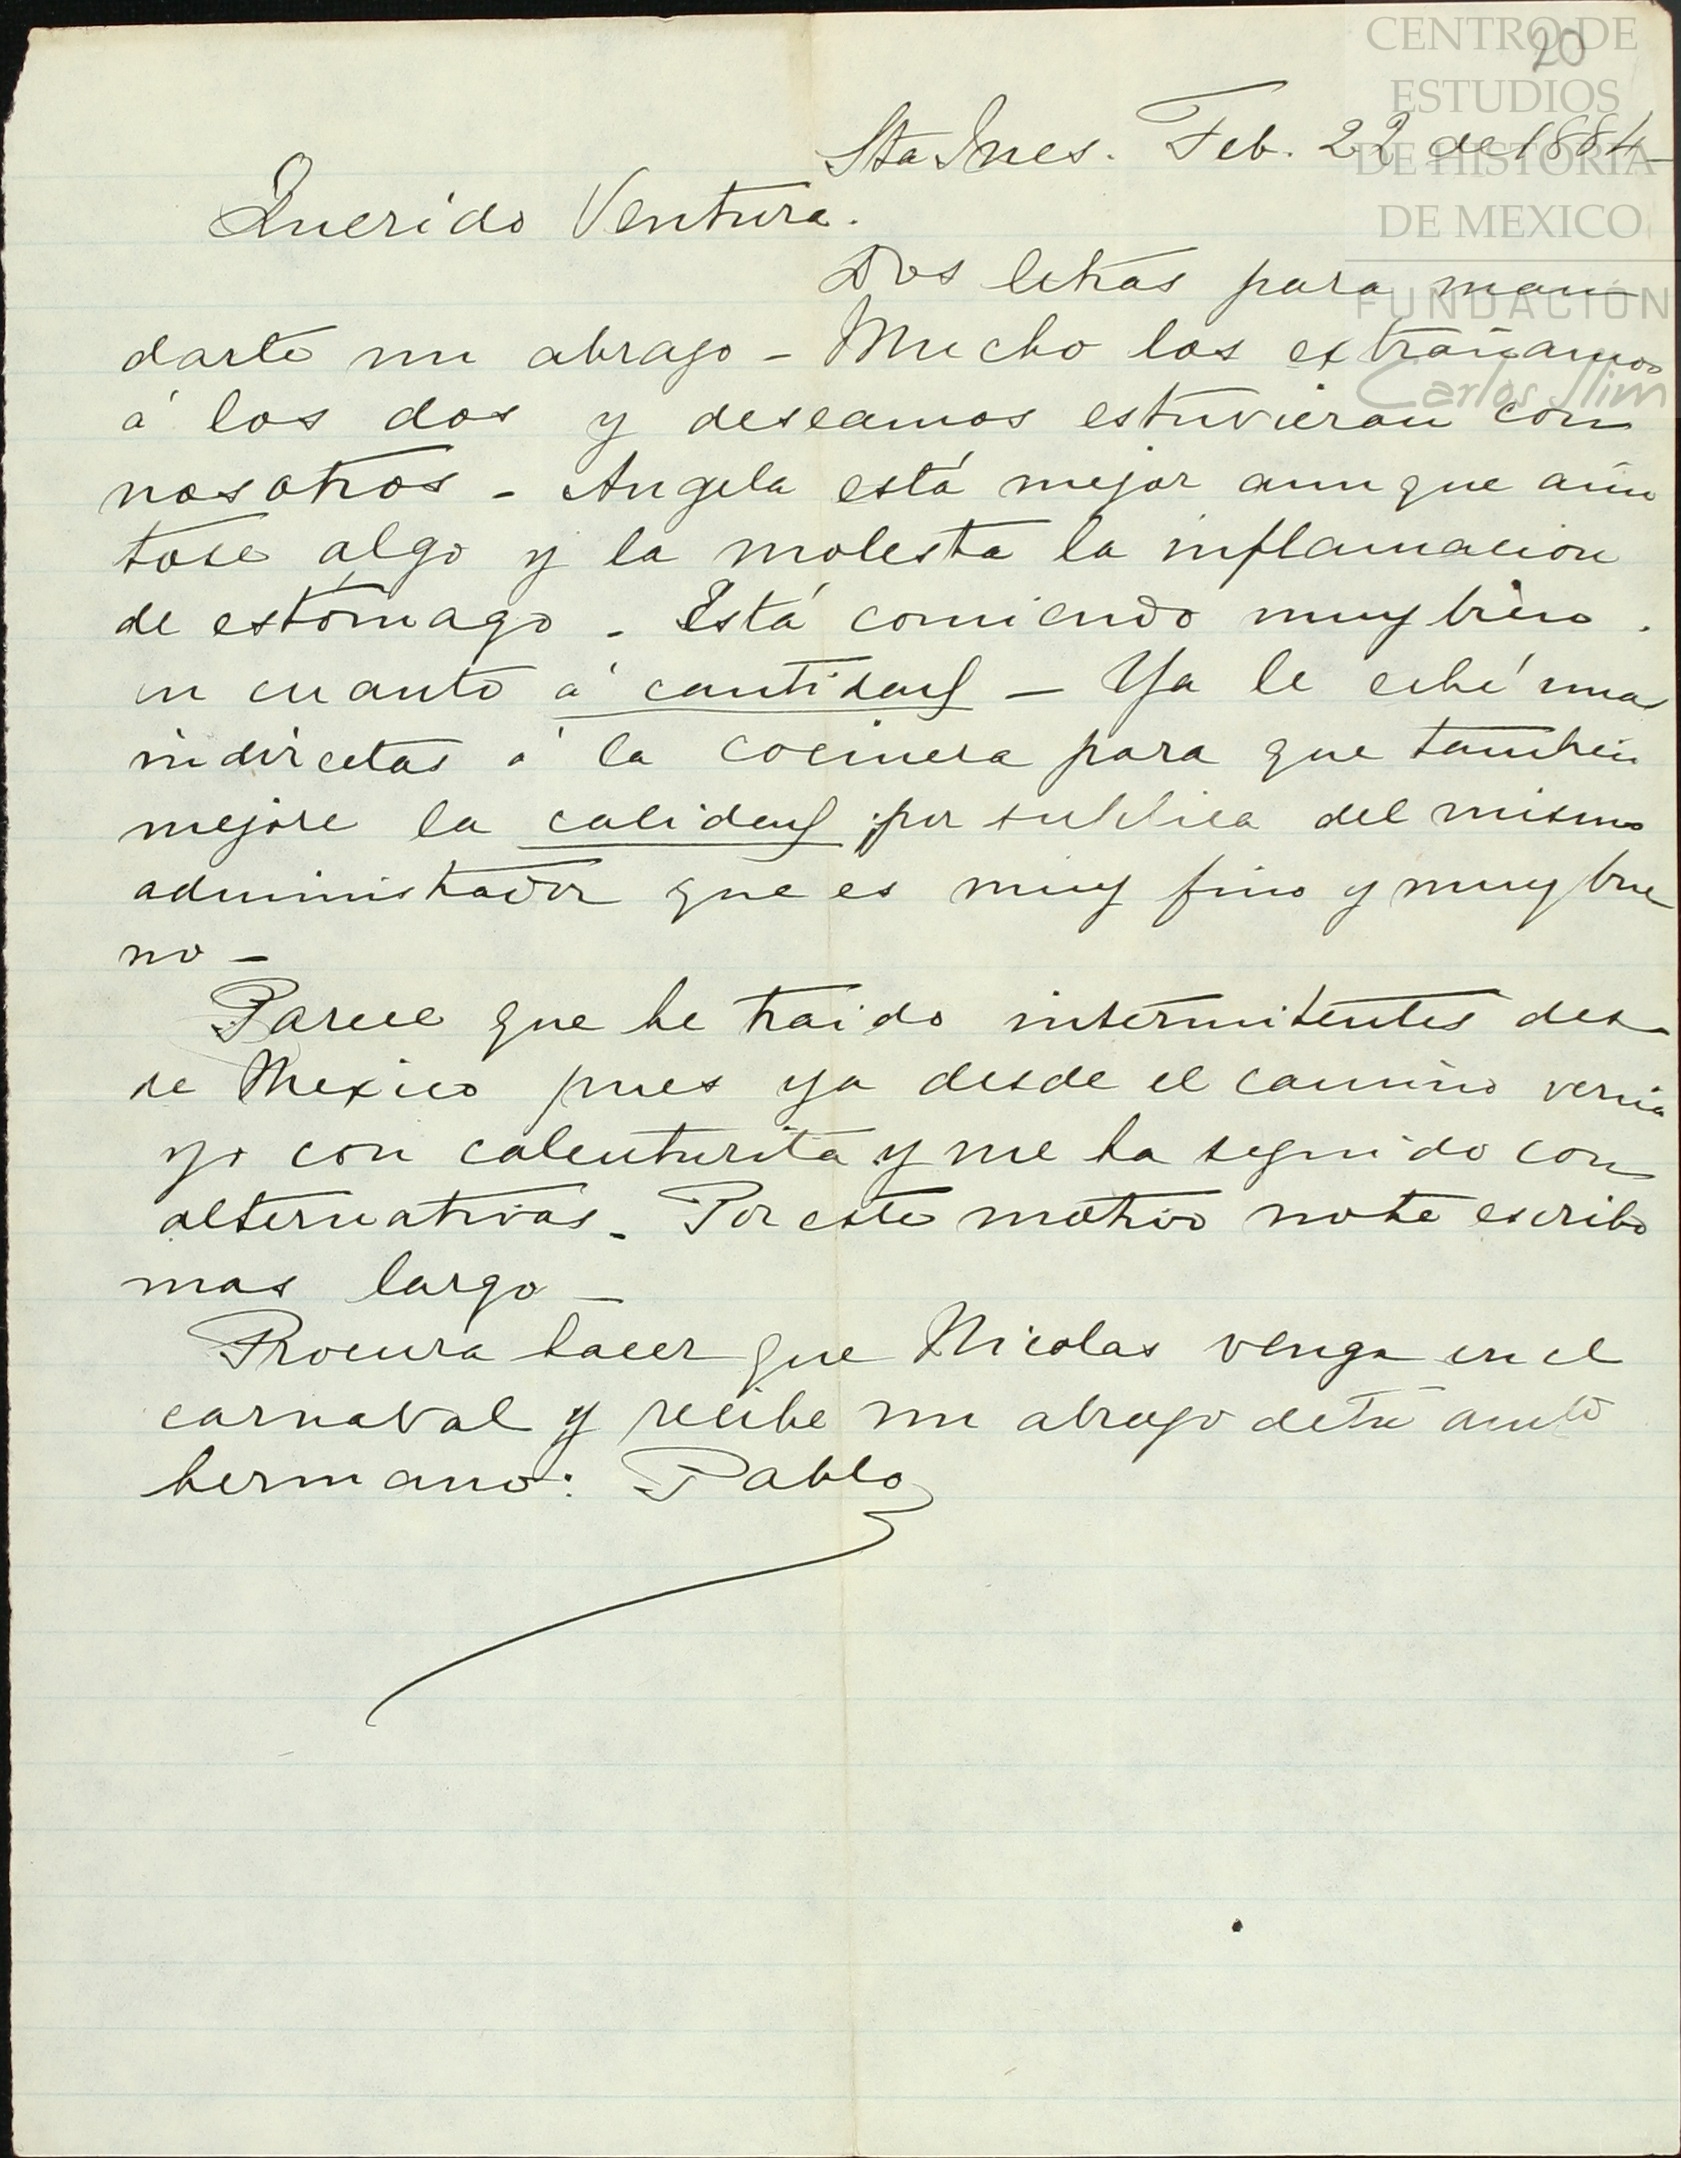 CENTRO DE
ESTUDIOS
DE HISTORIA
DE MEXICO
FUNDACIÓN
Carlos Slim
20
Sta Ines. Feb. 22 de 1884
Querido Ventura.
Dos letras para man
darte un abrazo - Mucho los extrañamos
á los dos y deseamos estuvieran con
nosotros - Angela está mejor aunque aún
tose algo y la molesta la inflamacion
de estómago - Está comiendo muy bien.
en cuanto á cantidad - Ya le eché unas
indirectas á la cocinera para que tambien
mejore la calidad por súplica del mismo
administrador que es muy fino y muy bue
no -
Parece que he traido intermitentes des
de Mexico pues ya desde el camino venia
yo con calenturita y me ha seguido con
alternativas - Por este motivo no te escribo
mas largo -
Procura hacer que Nicolas venga en el
carnaval y recibe un abrazo de tu
hermano: Pablo